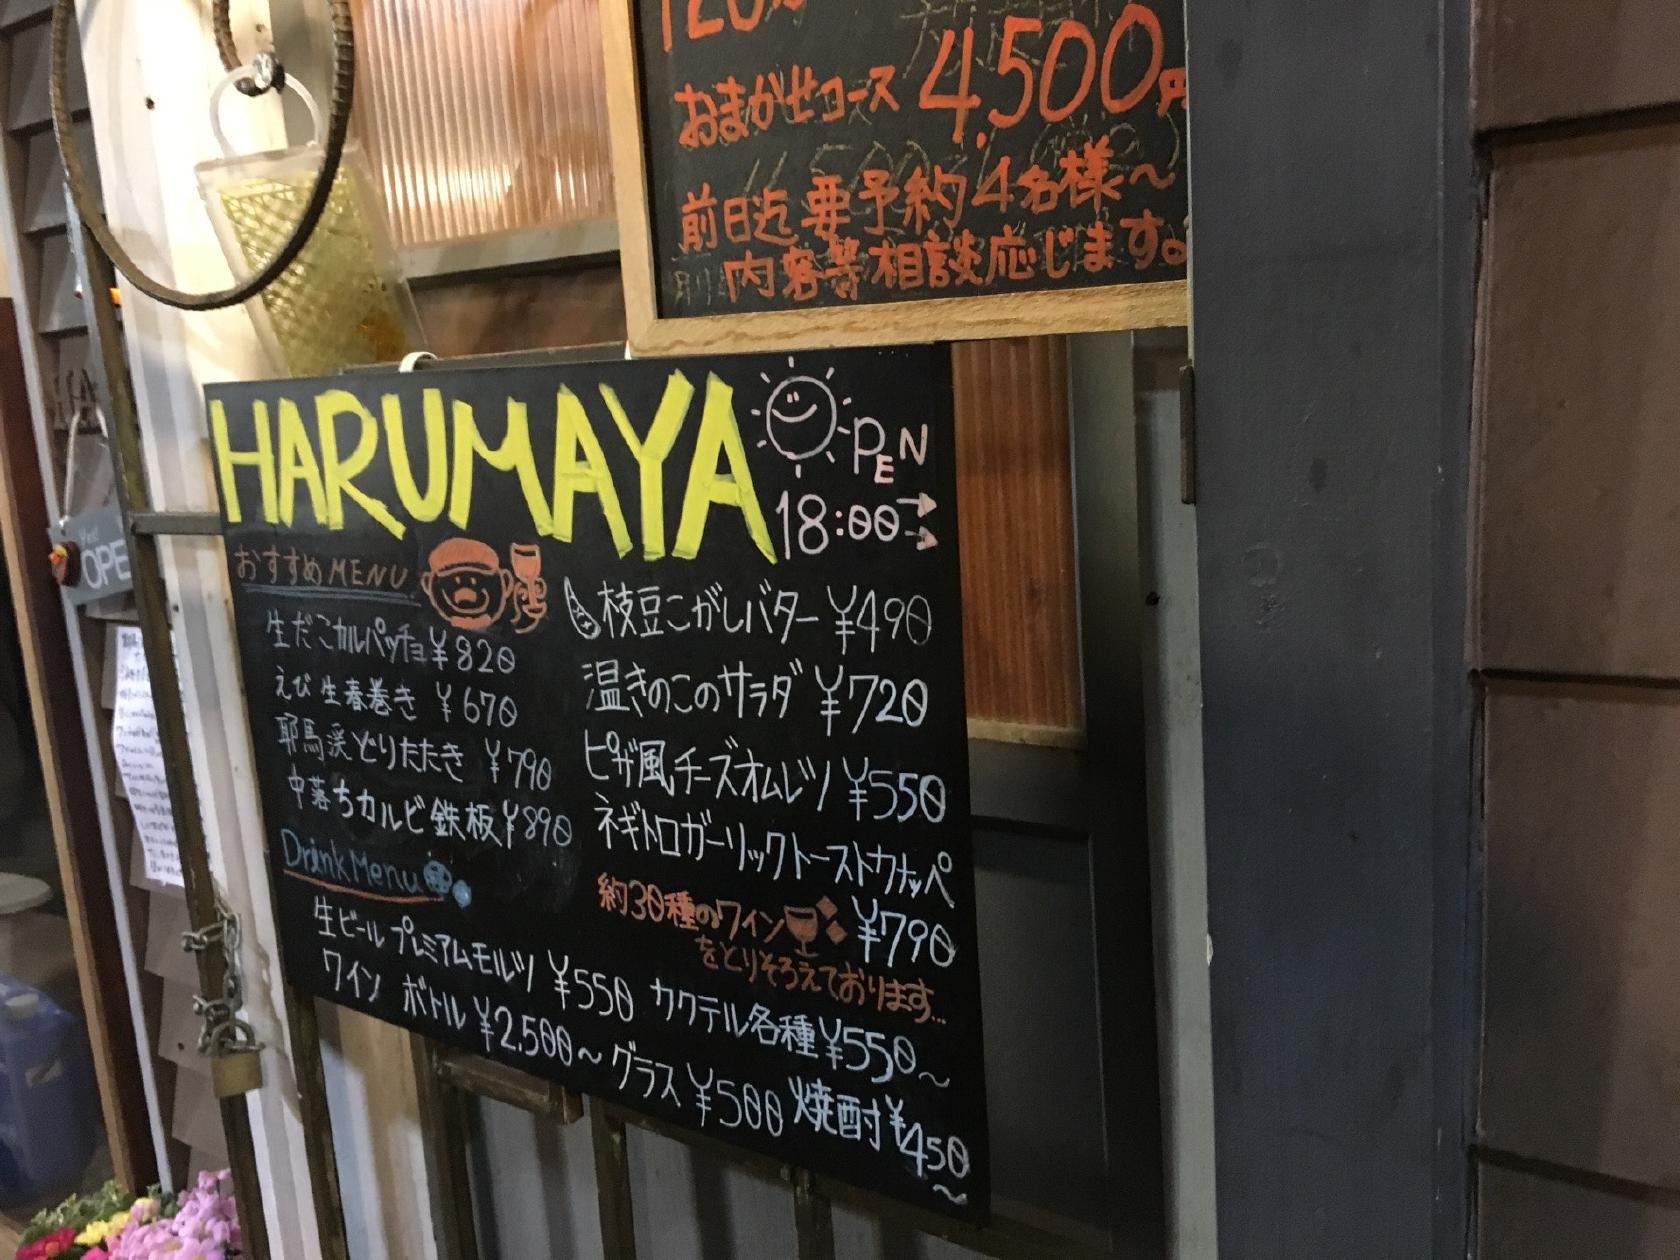 おまかせコース 4,500円
前日迄要予約 4名様〜
内容等相談応じます。
HARUMAYA
OPEN
18:00→
おすすめMENU
生だこカルパッチョ ¥820
えび生春巻き ¥670
耶馬渓どりたたき ¥790
中落ちカルビ鉄板 ¥890
枝豆こがしバター ¥490
温きのこのサラダ ¥720
ピザ風チーズオムレツ ¥550
ネギトロガーリックトーストカナッペ
¥790
約30種のワイン
をとりそろえております...
Drink Menu
生ビール プレミアムモルツ ¥550
カクテル各種 ¥550〜
ワイン ボトル ¥2.500〜 グラス ¥500
焼酎 ¥450〜
OPE